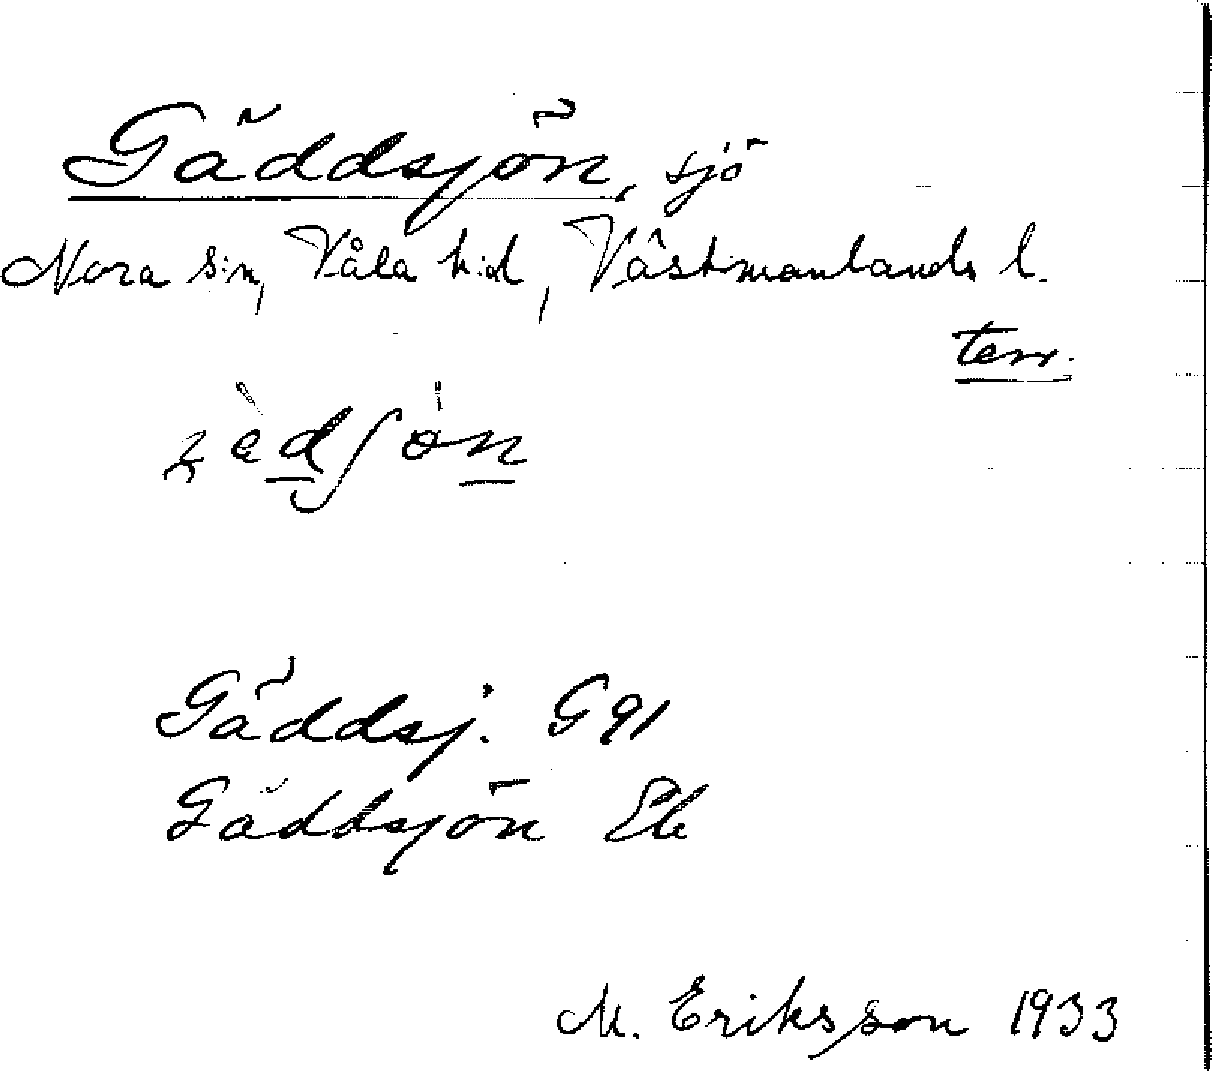 Gäddsjön, sjö
Nora s:n, Våla h:d, Västmanlands l.
terr.
Gäddsj. G91
Gäddsjön Ek
M. Eriksson 1933